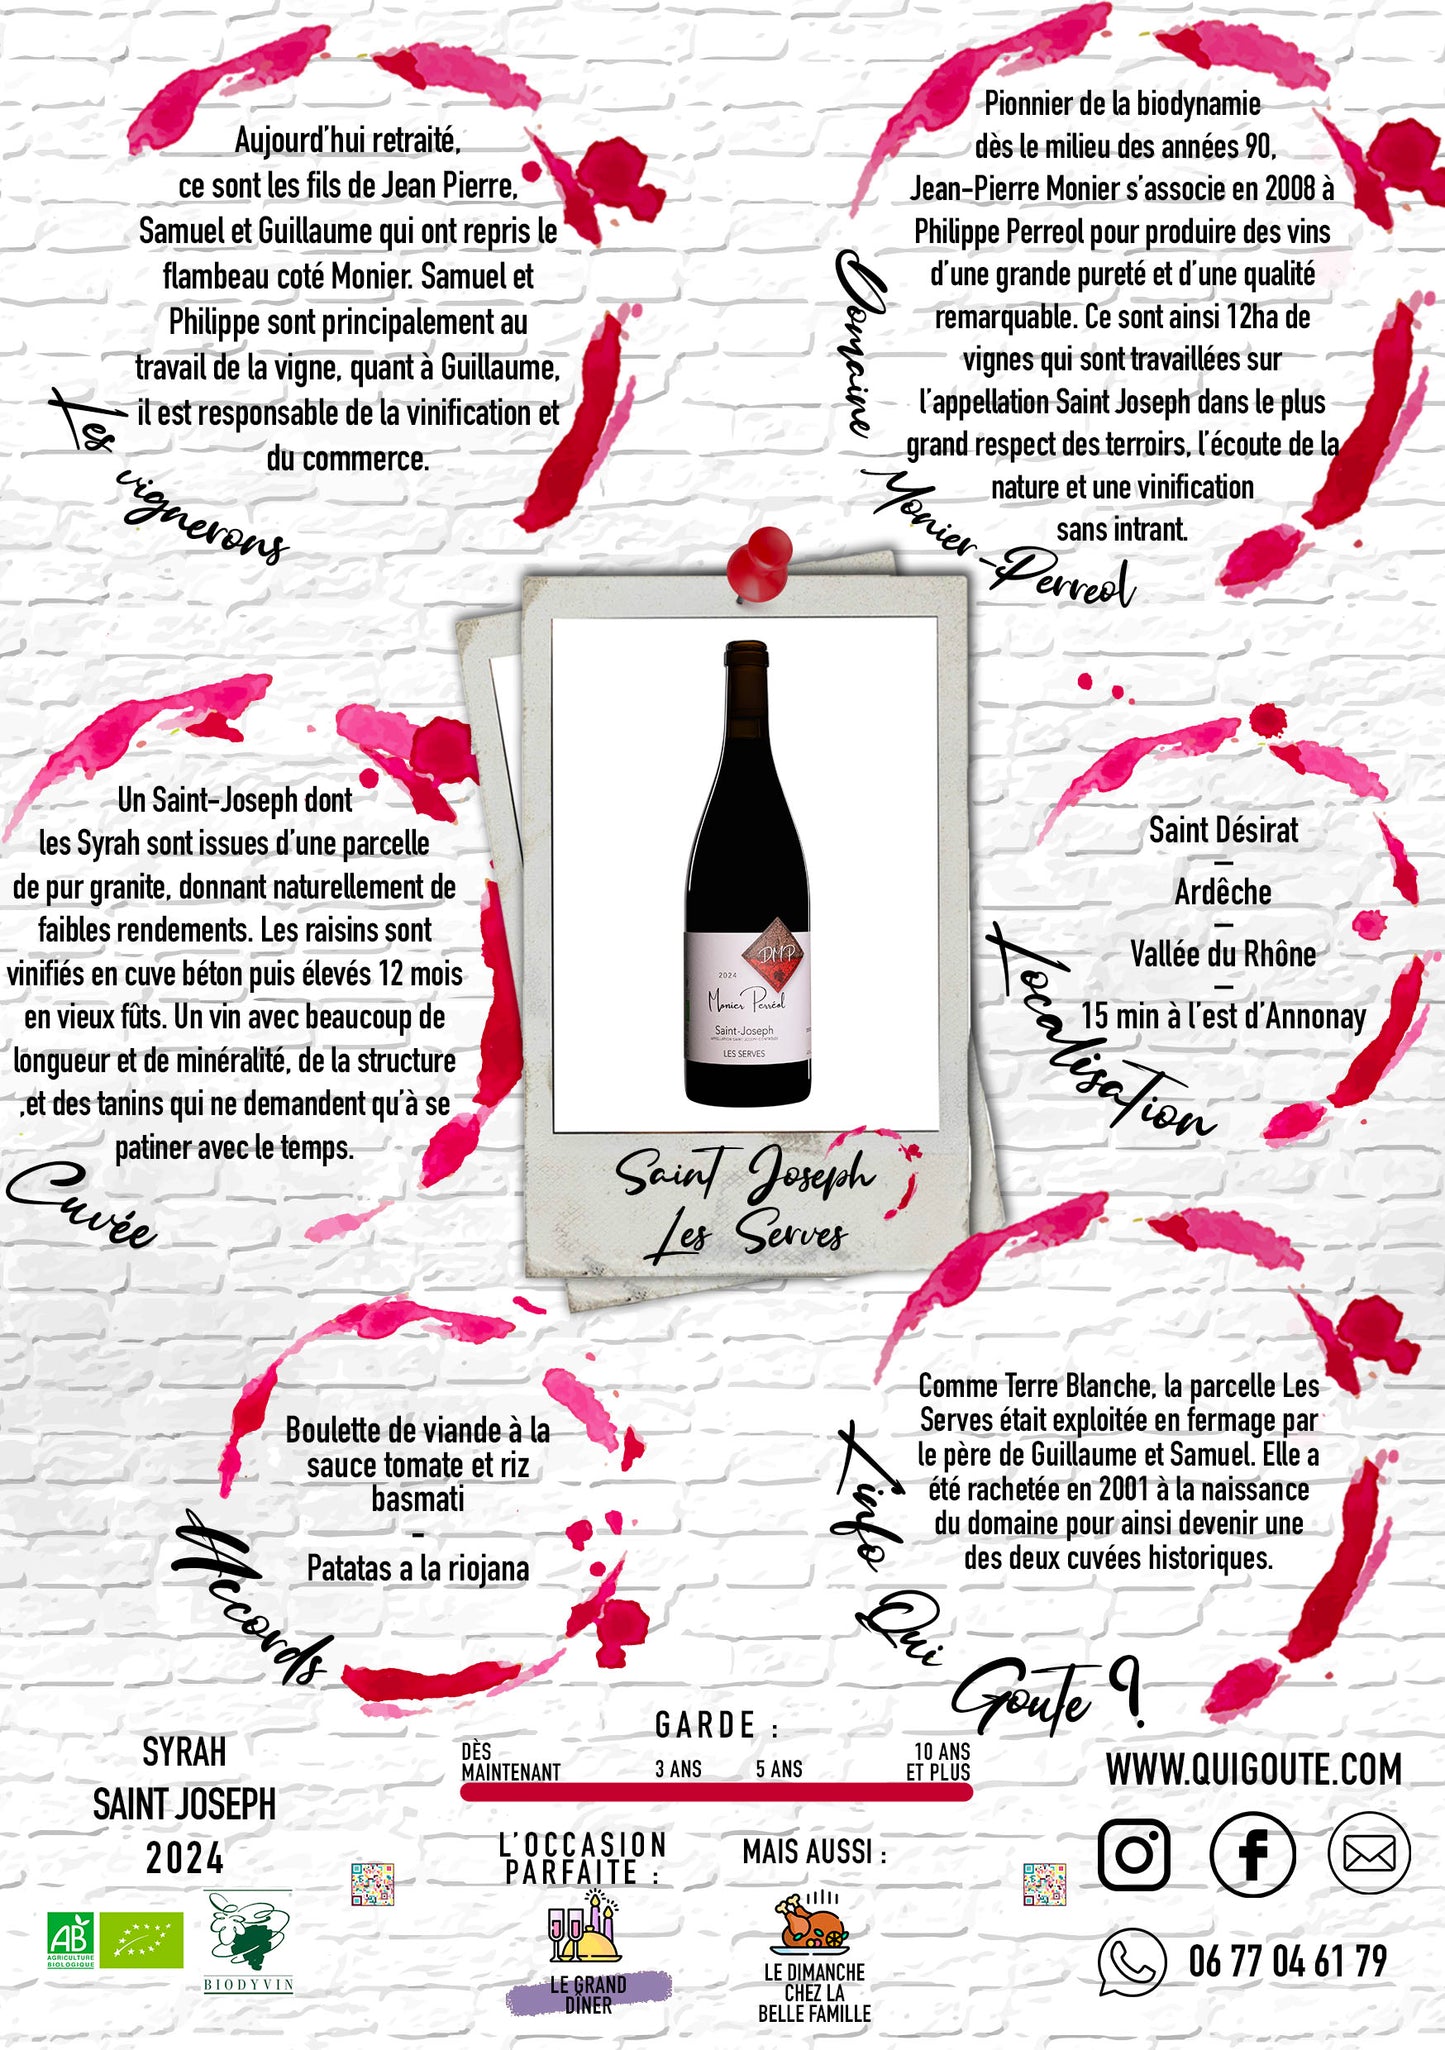 Aujourd'hui retraité,
ce sont les fils de Jean Pierre,
Samuel et Guillaume qui ont repris le
flambeau coté Monier. Samuel et
Philippe sont principalement au
travail de la vigne, quant à Guillaume,
il est responsable de la vinification et
du commerce.
Les vignerons
Pionnier de la biodynamie
dès le milieu des années 90,
Jean-Pierre Monier s'associe en 2008 à
Philippe Perreol pour produire des vins
d'une grande pureté et d'une qualité
remarquable. Ce sont ainsi 12ha de
vignes qui sont travaillées sur
l'appellation Saint Joseph dans le plus
grand respect des terroirs, l'écoute de la
nature et une vinification
sans intrant.
Domaine Monier-Perreol
Un Saint-Joseph dont
les Syrah sont issues d'une parcelle
de pur granite, donnant naturellement de
faibles rendements. Les raisins sont
vinifiés en cuve béton puis élevés 12 mois
en vieux fûts. Un vin avec beaucoup de
longueur et de minéralité, de la structure
,et des tanins qui ne demandent qu'à se
patiner avec le temps.
Cuvée
DMP
2024
Monier Perréol
Saint-Joseph
APPELLATION SAINT JOSEPH CONTRÔLÉE
LES SERVES
Saint Joseph
Les Serves
Saint Désirat
–
Ardêche
–
Vallée du Rhône
–
15 min à l'est d'Annonay
Localisation
Boulette de viande à la
sauce tomate et riz
basmati
-
Patatas a la riojana
Accords
Comme Terre Blanche, la parcelle Les
Serves était exploitée en fermage par
le père de Guillaume et Samuel. Elle a
été rachetée en 2001 à la naissance
du domaine pour ainsi devenir une
des deux cuvées historiques.
L'info Qui Goute ?
SYRAH
SAINT JOSEPH
2024
AB
AGRICULTURE
BIOLOGIQUE
BIODYVIN
GARDE :
DÈS
MAINTENANT
3 ANS
5 ANS
10 ANS
ET PLUS
L'OCCASION
PARFAITE :
LE GRAND
DÎNER
MAIS AUSSI :
LE DIMANCHE
CHEZ LA
BELLE FAMILLE
WWW.QUIGOUTE.COM
06 77 04 61 79